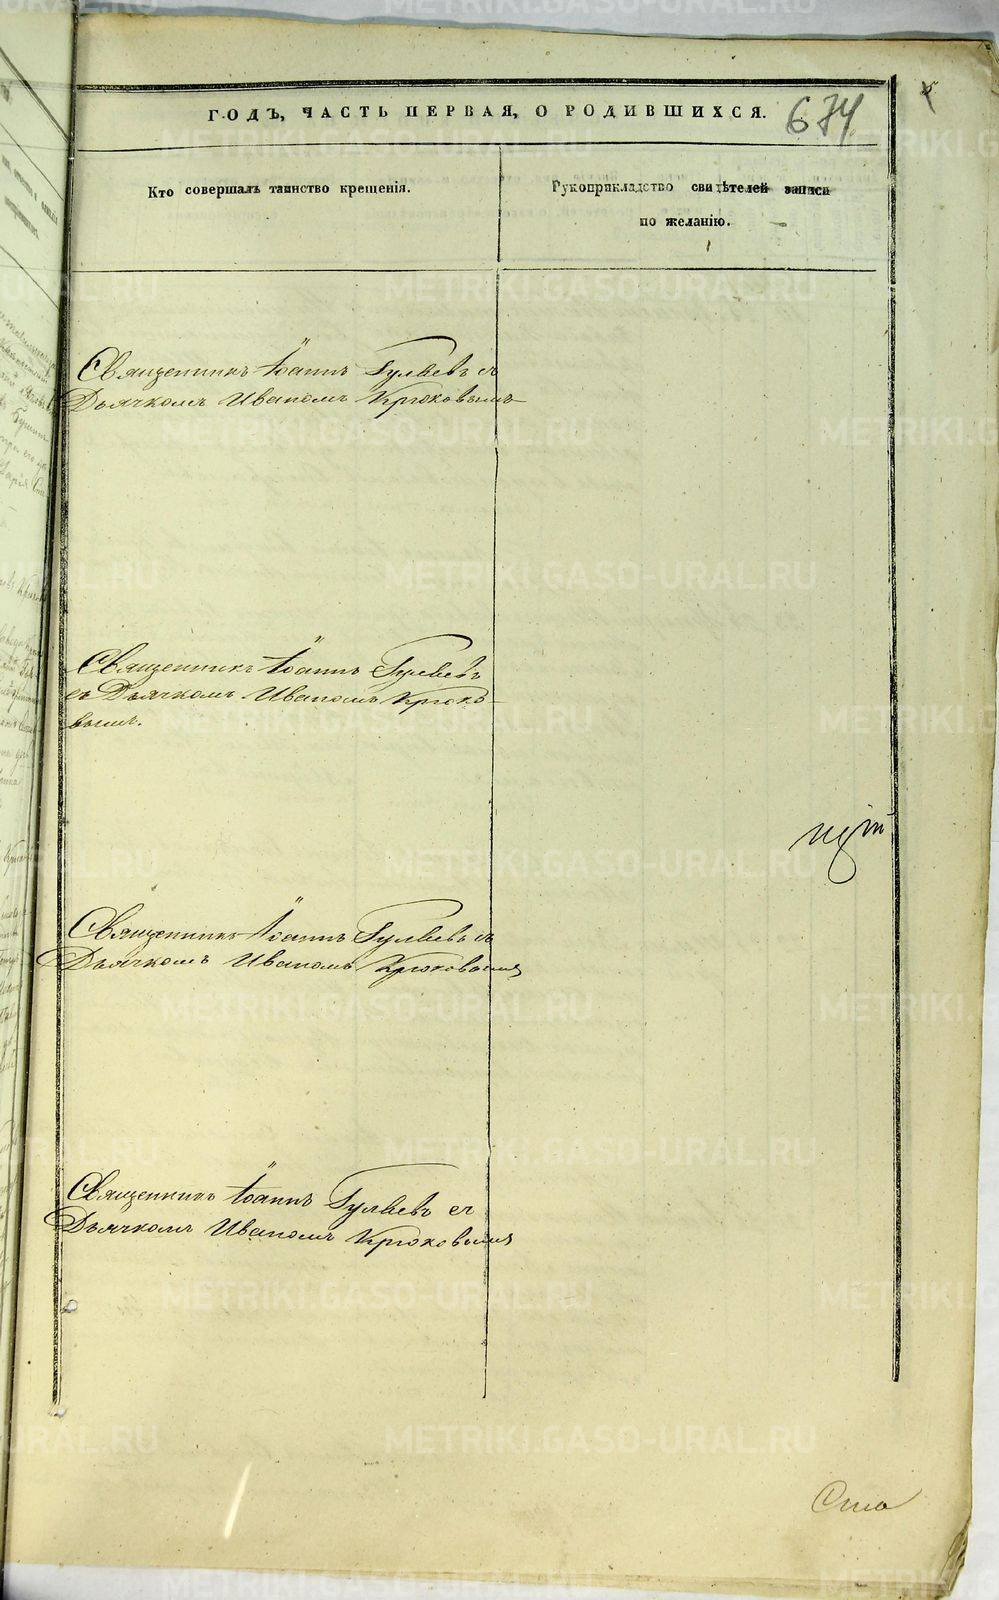 ГОДЪ, ЧАСТЬ ПЕРВАЯ, О РОДИВШИХСЯ. 674
Кто совершалъ таинство крещенія.
Рукоприкладство свидѣтелей записи
по желанію.
Священникъ Іоаннъ Гуляевъ съ
Дьячкомъ Иваномъ Крюковымъ
Священникъ Іоаннъ Гуляевъ
съ Дьячкомъ Иваномъ Крюко-
вымъ.
Священникъ Іоаннъ Гуляевъ съ
Дьячкомъ Иваномъ Крюковымъ
Священникъ Іоаннъ Гуляевъ съ
Дьячкомъ Иваномъ Крюковымъ
METRIKI.GASO-URAL.RU